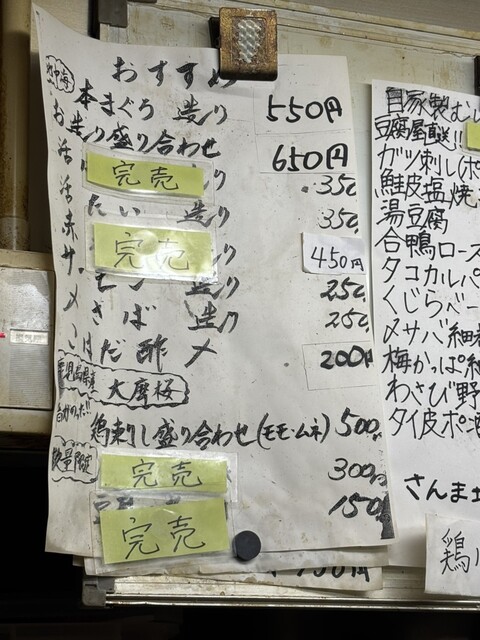 おすすめ
本まぐろ 造り 550円
お造り盛り合わせ 650円
活 完売 り 350
活 たい 造り 350
完売 り 450円
サーモン 造り 250
〆さば 造り 250
こはだ酢〆 200円
鹿児島県産 大摩桜
鶏刺し盛り合わせ(モモ・ムネ) 500
数量限定 完売 300円
完売 150
自家製
豆腐屋直送!!
ガツ刺し(ポ
鮭皮塩焼
湯豆腐
合鴨ロース
タコカルパ
くじらベー
〆サバ細
梅かっぱ
わさび野
タイ皮ポン
さんま
鶏